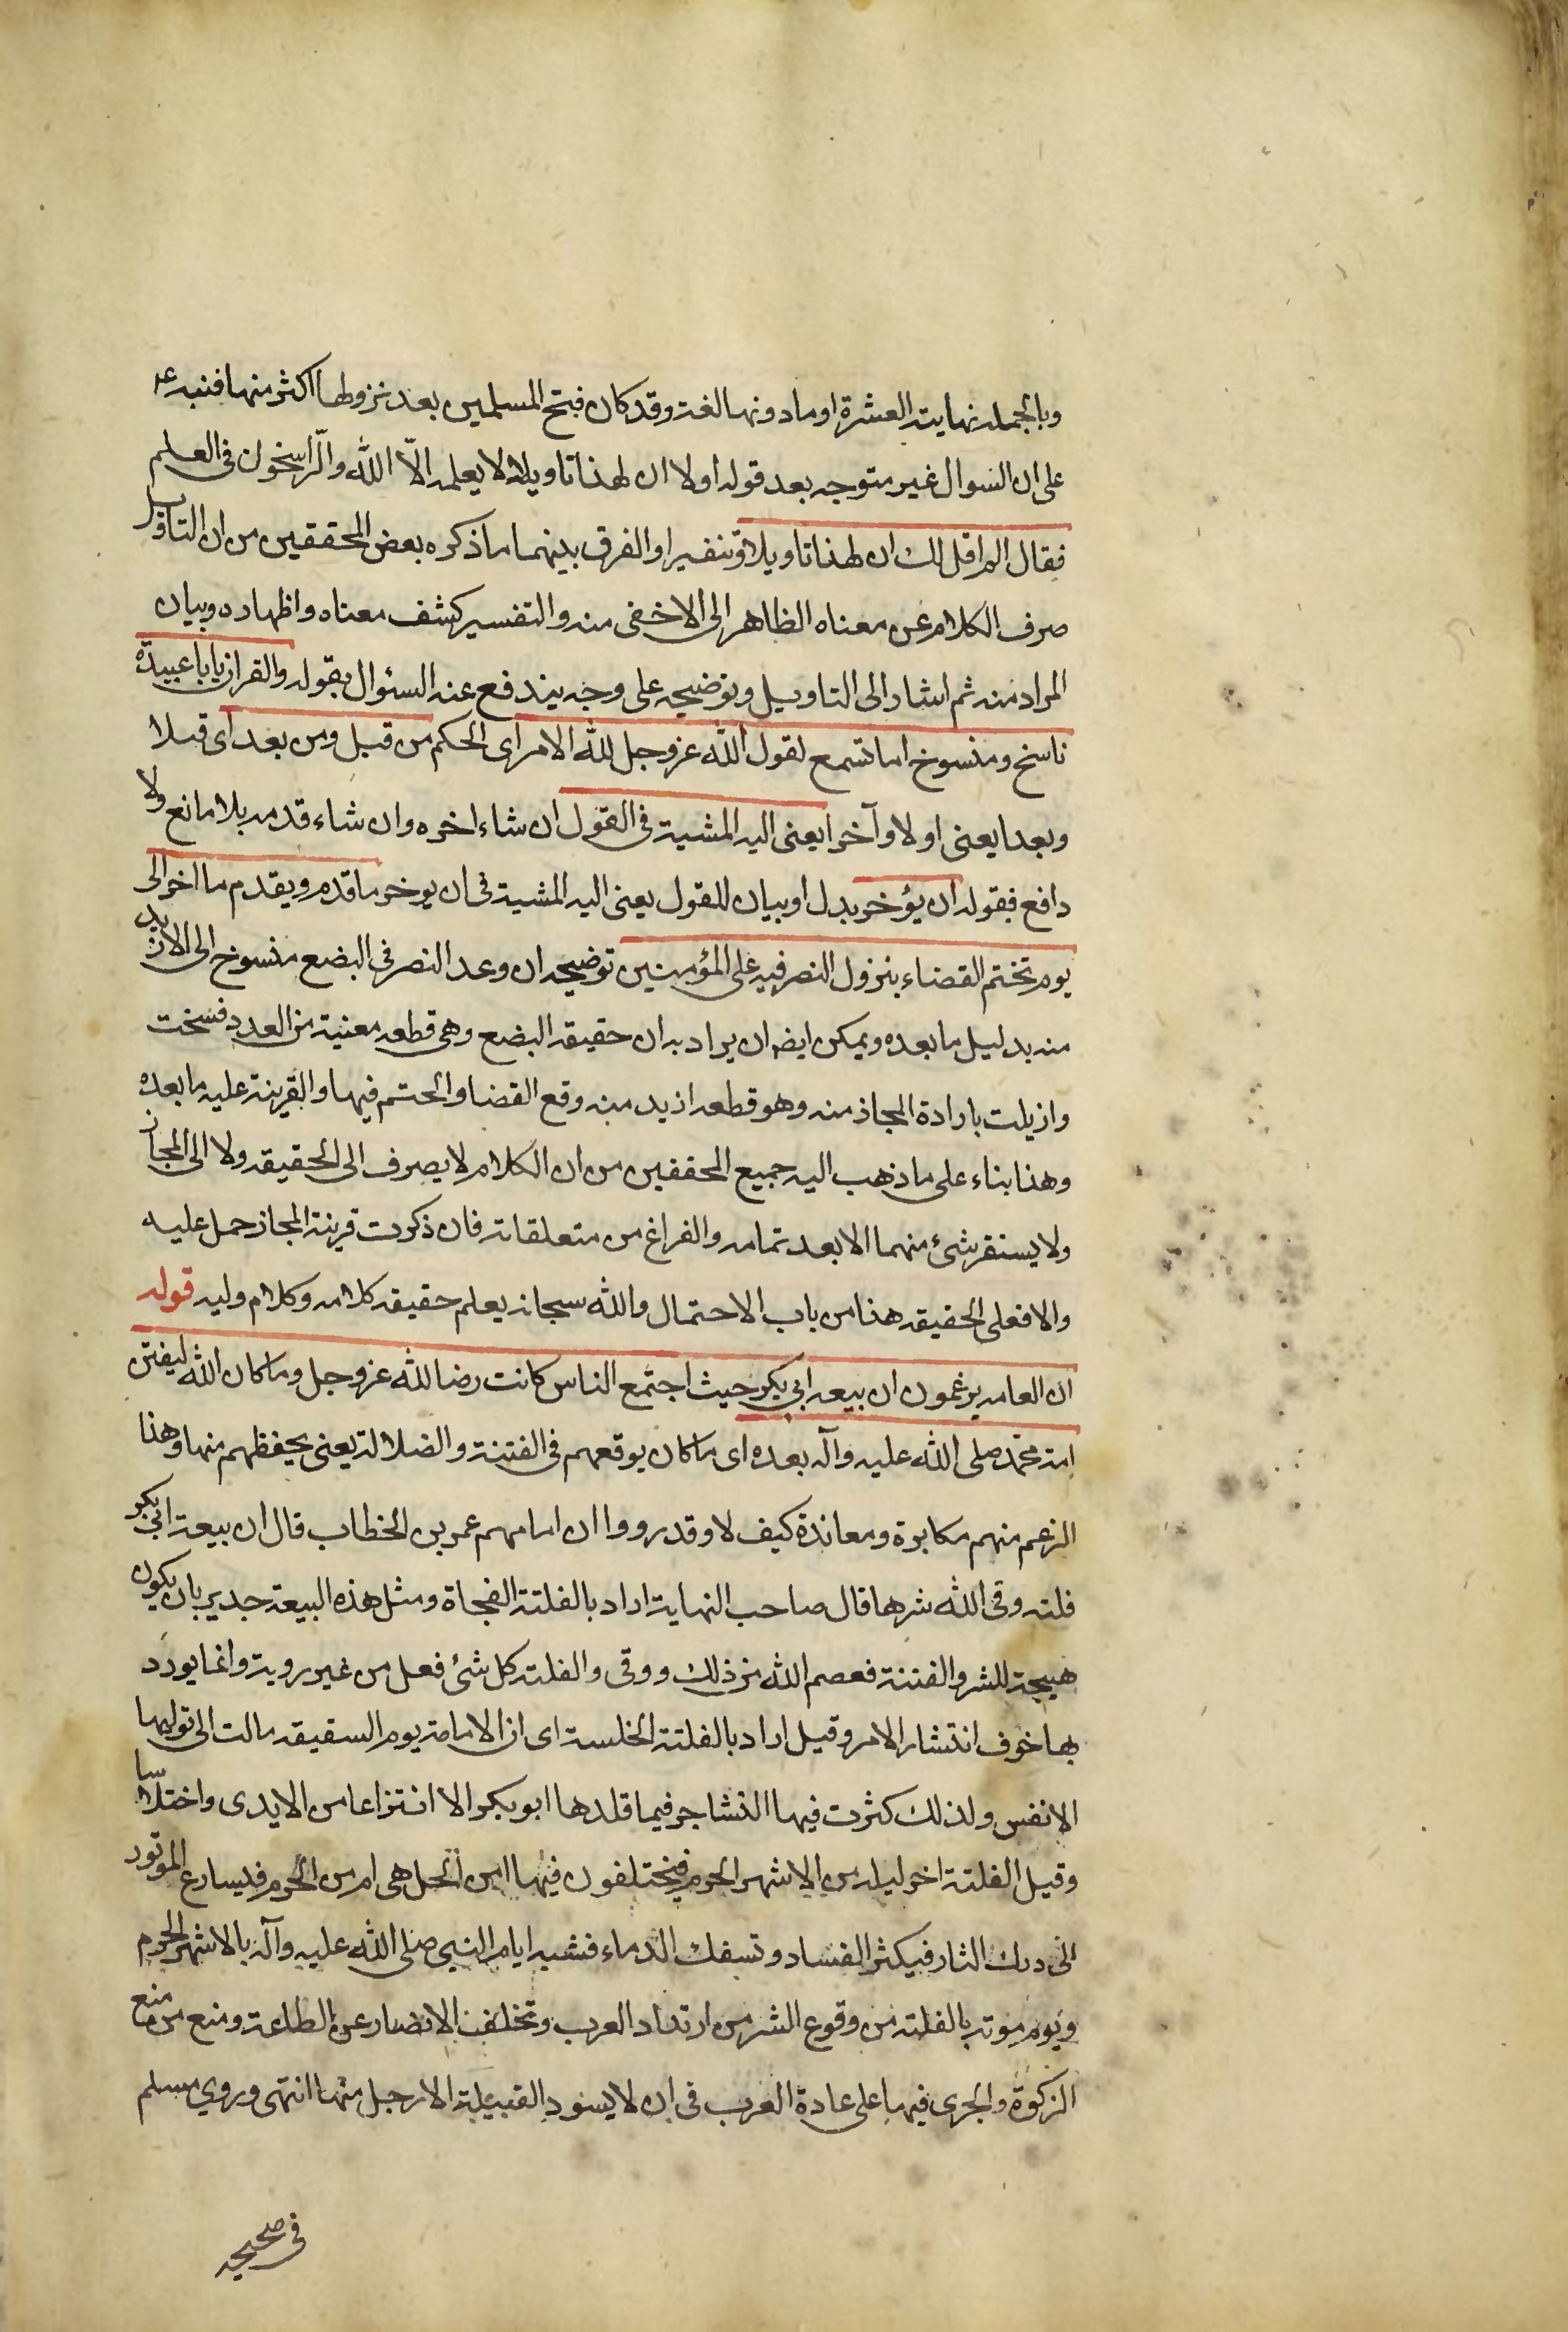 وبالجمله نهايت العشرة او مادونها لغة وقد كان فتح المسلمين بعد نزولها اكثر منها فنبه ع
على ان السوال غير متوجه بعد قوله اولا ان لهذا تاويلا لا يعلمه الّا اللّه والرّاسخون فى العلم
فقال الم اقل لك ان لهذا تاويلا وتفسيرا والفرق بينهما ما ذكره بعض المحققين من ان التاويل
صرف الكلام عن معناه الظاهر الى الاخفى منه والتفسير كشف معناه واظهاره وبيان
المراد منه ثم اشار الى التاويل وتوضيحه على وجه يندفع عنه السئوال بقوله والقران يا با عبيدة
ناسخ ومنسوخ اما تسمع لقول اللّه عز وجل للّه الامر اى الحكم من قبل ومن بعد اى قبلا
وبعدا يعنى اولا وآخرا يعنى اليه المشية فى القول ان شاء اخره وان شاء قدمه بلا مانع ولا
دافع فقوله ان يؤخر بدل او بيان للقول يعنى اليه المشية فى ان يوخر ما قدم ويقدم ما اخر الى
يوم تختم القضاء بنزول النصر فيه على المؤمنين توضيحه ان وعد النصر فى البضع منسوخ الى الازيد
منه بدليل ما بعده ويمكن ايض ان يراد به ان حقيقه البضع وهى قطعه معنية من العدد فسخت
وازيلت بارادة المجاز منه وهو قطعه ازيد منه وقع القضا والحتم فيها والقرينة عليه ما بعده
وهذا بناء على ما ذهب اليه جميع المحققين من ان الكلام لا يصرف الى الحقيقه ولا الى المجاز
ولا يستقر شئ منهما الا بعد تمامه والفراغ من متعلقاته فان ذكرت قرينة المجاز حمل عليه
والا فعلى الحقيقه هذا من باب الاحتمال واللّه سبحانه يعلم حقيقه كلامه وكلام وليه قوله
ان العامه يزعمون ان بيعه ابى بكر حيث اجتمع الناس كانت رضا للّه عز وجل وما كان اللّه ليفتن
امة محمّد صلى اللّه عليه وآله بعده اى ما كان يوقعهم فى الفتنة والضلالة يعنى يحفظهم منها وهذا
الزعم منهم مكابرة ومعاندة كيف لا وقد رووا ان امامهم عمر بن الخطاب قال ان بيعة ابى بكر
فلته وقى اللّه شرها قال صاحب النهاية اراد بالفلتة الفجاة ومثل هذه البيعة جدير بان يكون
هيجة للشر والفتنة فعصم اللّه من ذلك ووقى والفلته كل شئ فعل من غير روية وانما يورد
بها خوف انتشار الامر وقيل اراد بالفلتة الخلسة اى ان الامامة يوم السقيقه مالت الى توليها
الانفس ولذلك كثرت فيها التشاجر فيما قلدها ابو بكر الا انتزاعا من الايدى واختلاسا
وقيل الفلتة اخر ليله من الاشهر الحرم فيختلفون فيها امن الحل هى ام من الحرم فليسارع الموتور
الى درك الثار فيكثر الفساد وتسفك الدماء فشبه ايام النبى صلى اللّه عليه وآله بالاشهر الحرم
ويوم موته بالفلته من وقوع الشر من ارتداد العرب وتخلف الانصار عن الطاعة ومنع من منع
الزكوة والجرى فيها على عادة العرب فى ان لا يسود القبيلة الا رجل منها انتهى وروى مسلم
فى صحيحه